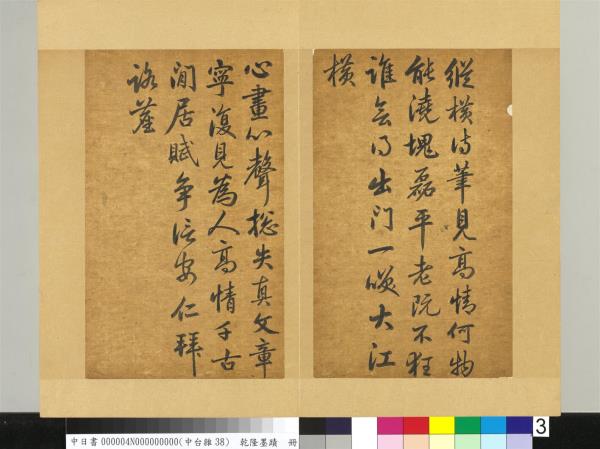 縱橫詩筆見高情何物
能澆塊磊平老阮不狂
誰會得出門一嘆大江
橫
心畫心聲總失真文章
寧復見為人高情千古
閒居賦爭信安仁拜
路塵
3
中日書 000004N000000000(中台雜 38) 乾隆墨蹟 冊